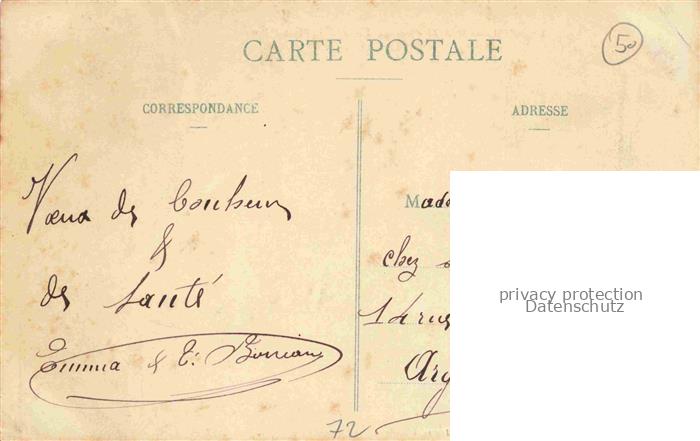 CARTE POSTALE
50
CORRESPONDANCE
ADRESSE
Vœux de bonheur
&
de santé
Emma & E.
Made
chez
14 rue
Arg
72
privacy protection
Datenschutz